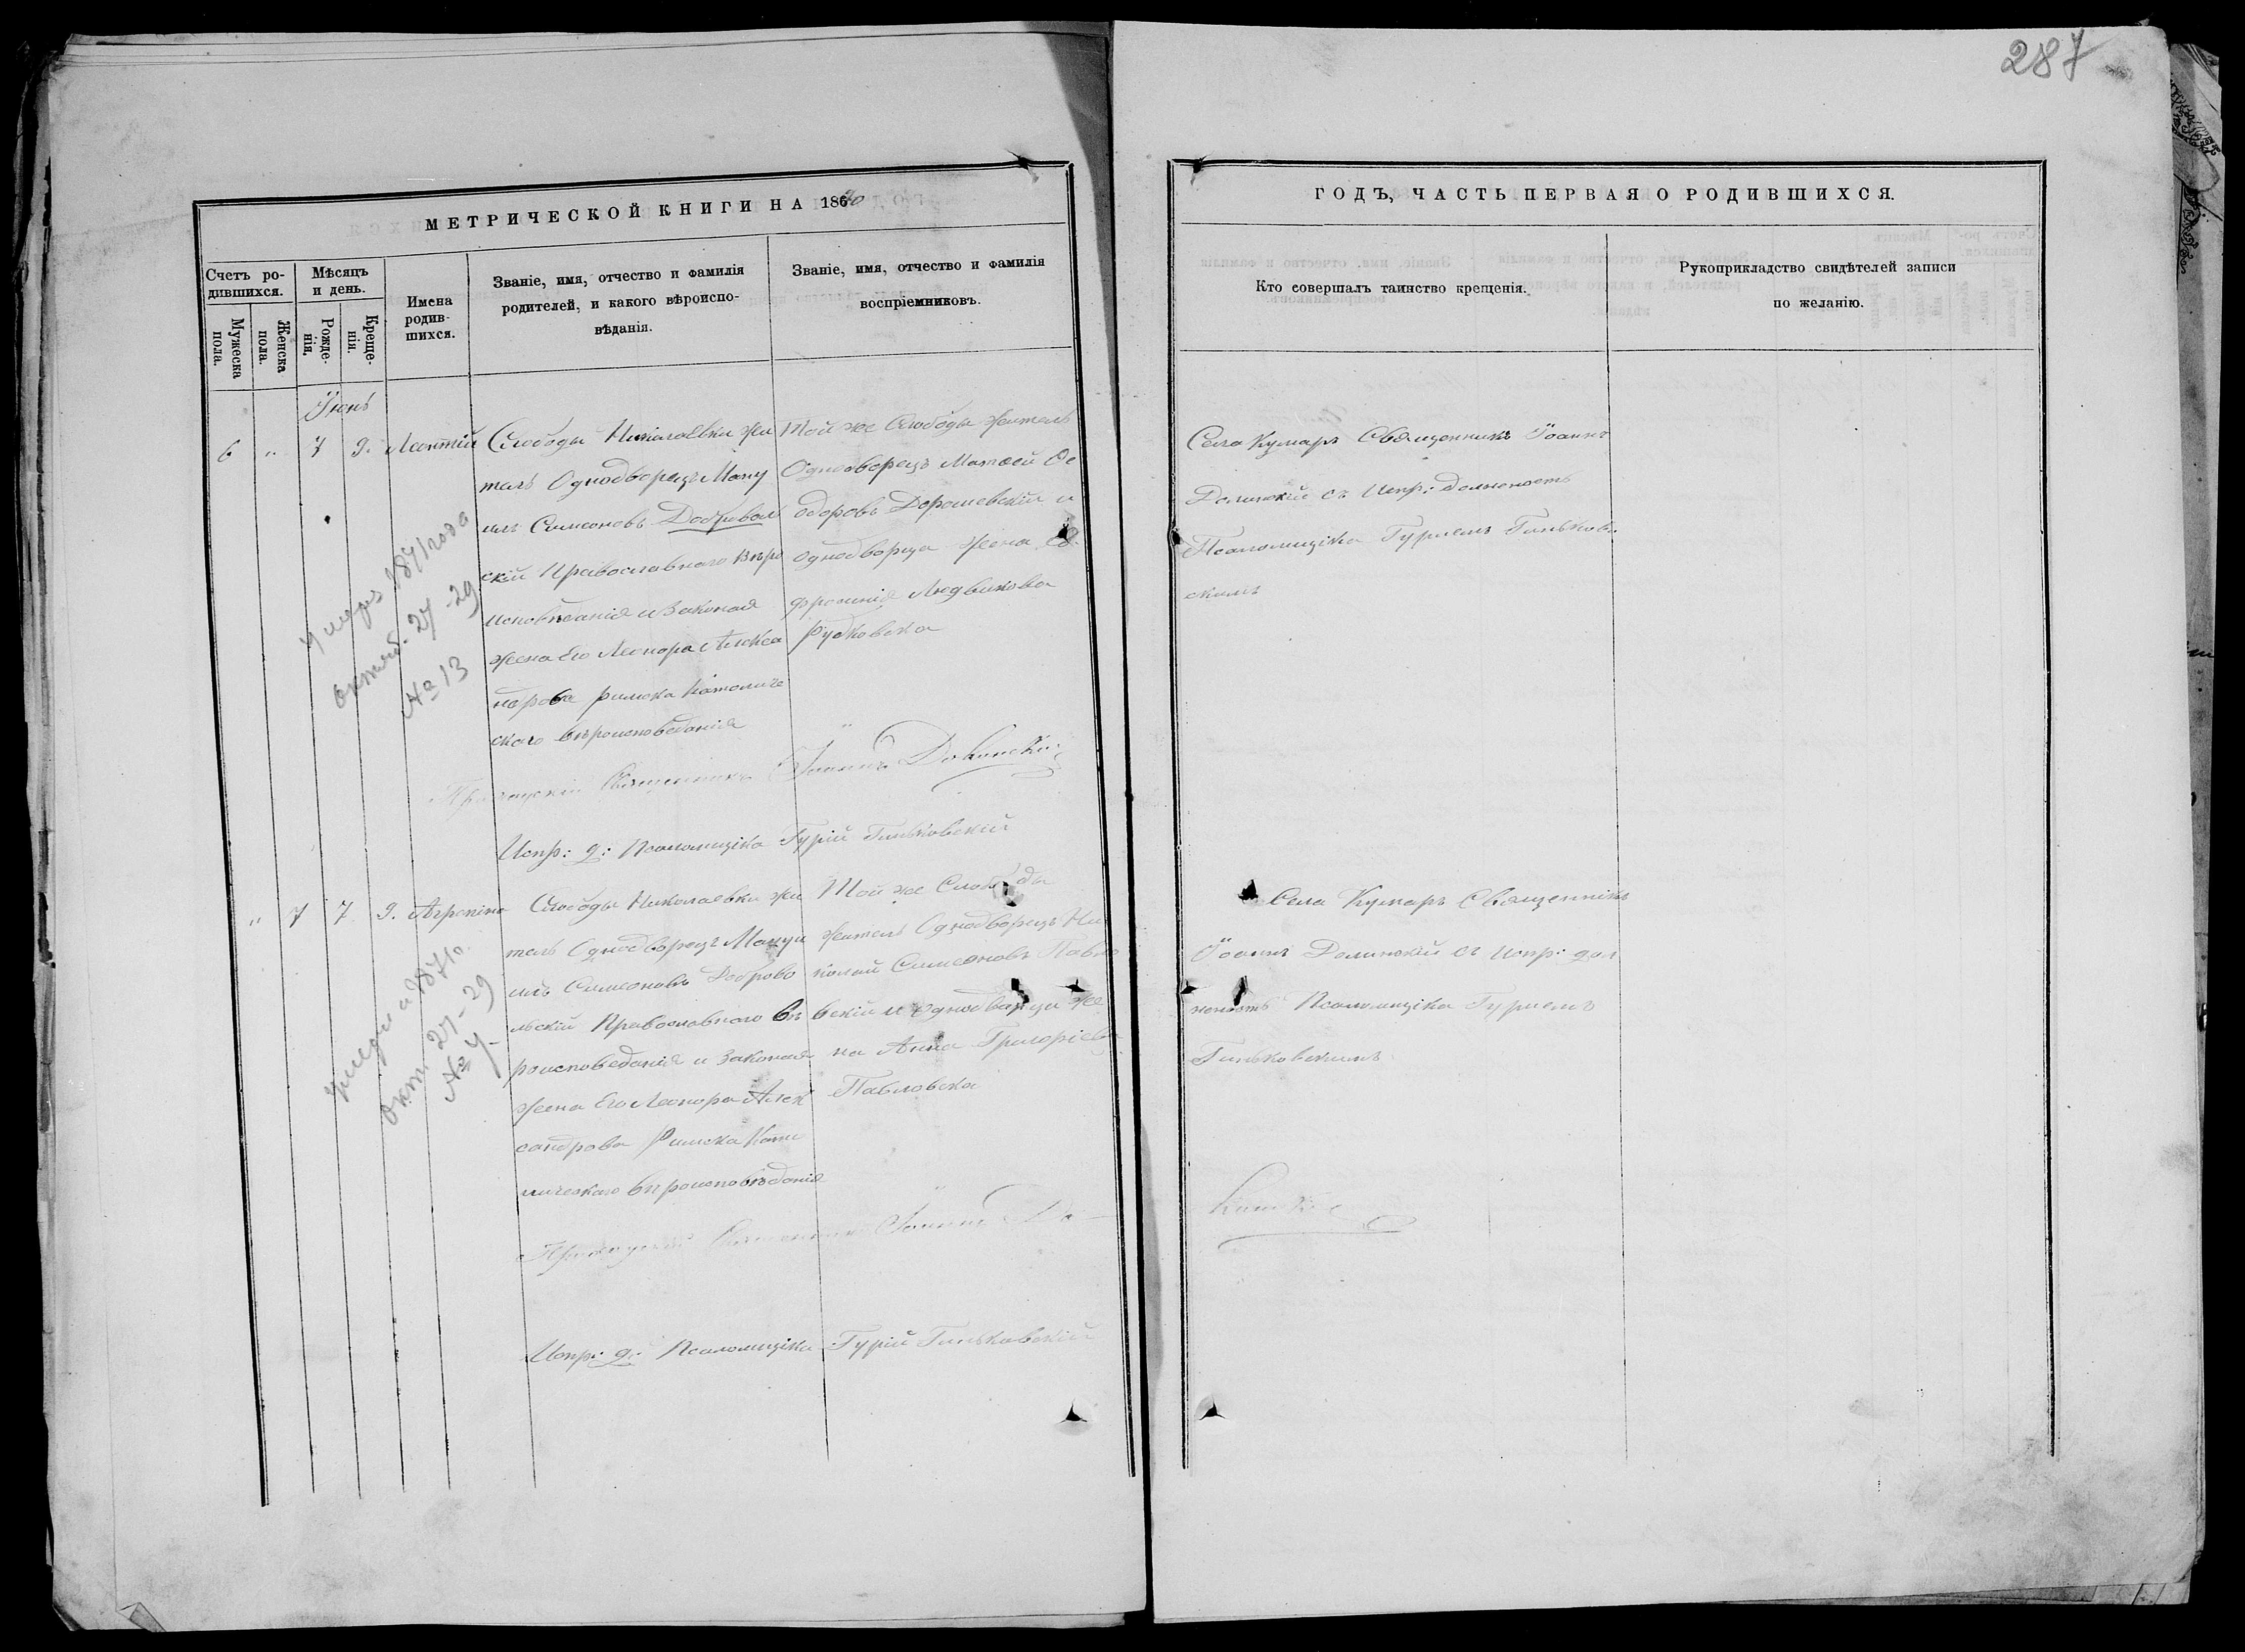 287
МЕТРИЧЕСКОЙ КНИГИ НА 1870
ГОДЪ, ЧАСТЬ ПЕРВАЯ О РОДИВШИХСЯ.
Счетъ ро-
дившихся.
Мужеска
пола.
Женска
пола.
Мѣсяцъ
и день.
Рожде-
нія.
Креще-
нія.
Имена
родив-
шихся.
Званіе, имя, отчество и фамилія
родителей, и какого вѣроиспо-
вѣданія.
Званіе, имя, отчество и фамилія
воспріемниковъ.
Кто совершалъ таинство крещенія.
Рукоприкладство свидѣтелей записи
по желанію.
Іюнь
6 " 7 9. Леонтій
Слободы Николаевки жи
тель Однодворецъ Ману
илъ Симеоновъ Добровол
скій Православнаго вѣро
исповѣданія и Законая
жена Его Леонора Алекса
ндрова римска Католиче
скаго вѣроисповеданія
Той же Слободы житель
Однодворецъ Матѳей Ѳе
одоровъ Дорошевскій и
однодворца жена Ев.
фросинія Людвикова
Рудковска
Села Кумаръ Священникъ Іоаннъ
Долинскій съ Испр: должность
Псаломщика Гуріемъ Гиньков.
скимъ
Умеръ 1871 года
октяб. 27-29
№ 13
Приходскій Священникъ Іоаннъ Долинскій
Испр: д: Псаломщика Гурій Гиньковскій
" 7 7 9. Агрепина
Слободы Николаевки жи
тель Однодворецъ Мануи
илъ Симеоновъ Доброво
льскій Православнаго вѣ
роисповеданія и Законая
жена Его Леонора Алек
сандрова Римска Като
лическаго вѣроисповѣданія
Той же Слободы
житель Однодворецъ Ни
колай Симеоновъ Павло
вскій и однодворца же
на Анна Григоріева
Павловска
Села Кумаръ Священникъ
Іоаннъ Долинскій съ Испр: дол
жность Псаломщика Гуріемъ
Гиньковскимъ
умерла 1871 г.
Окт. 27-29
Приходскій Священникъ Іоаннъ До-
линскій
Испр: д: Псаломщика Гурій Гиньковскій